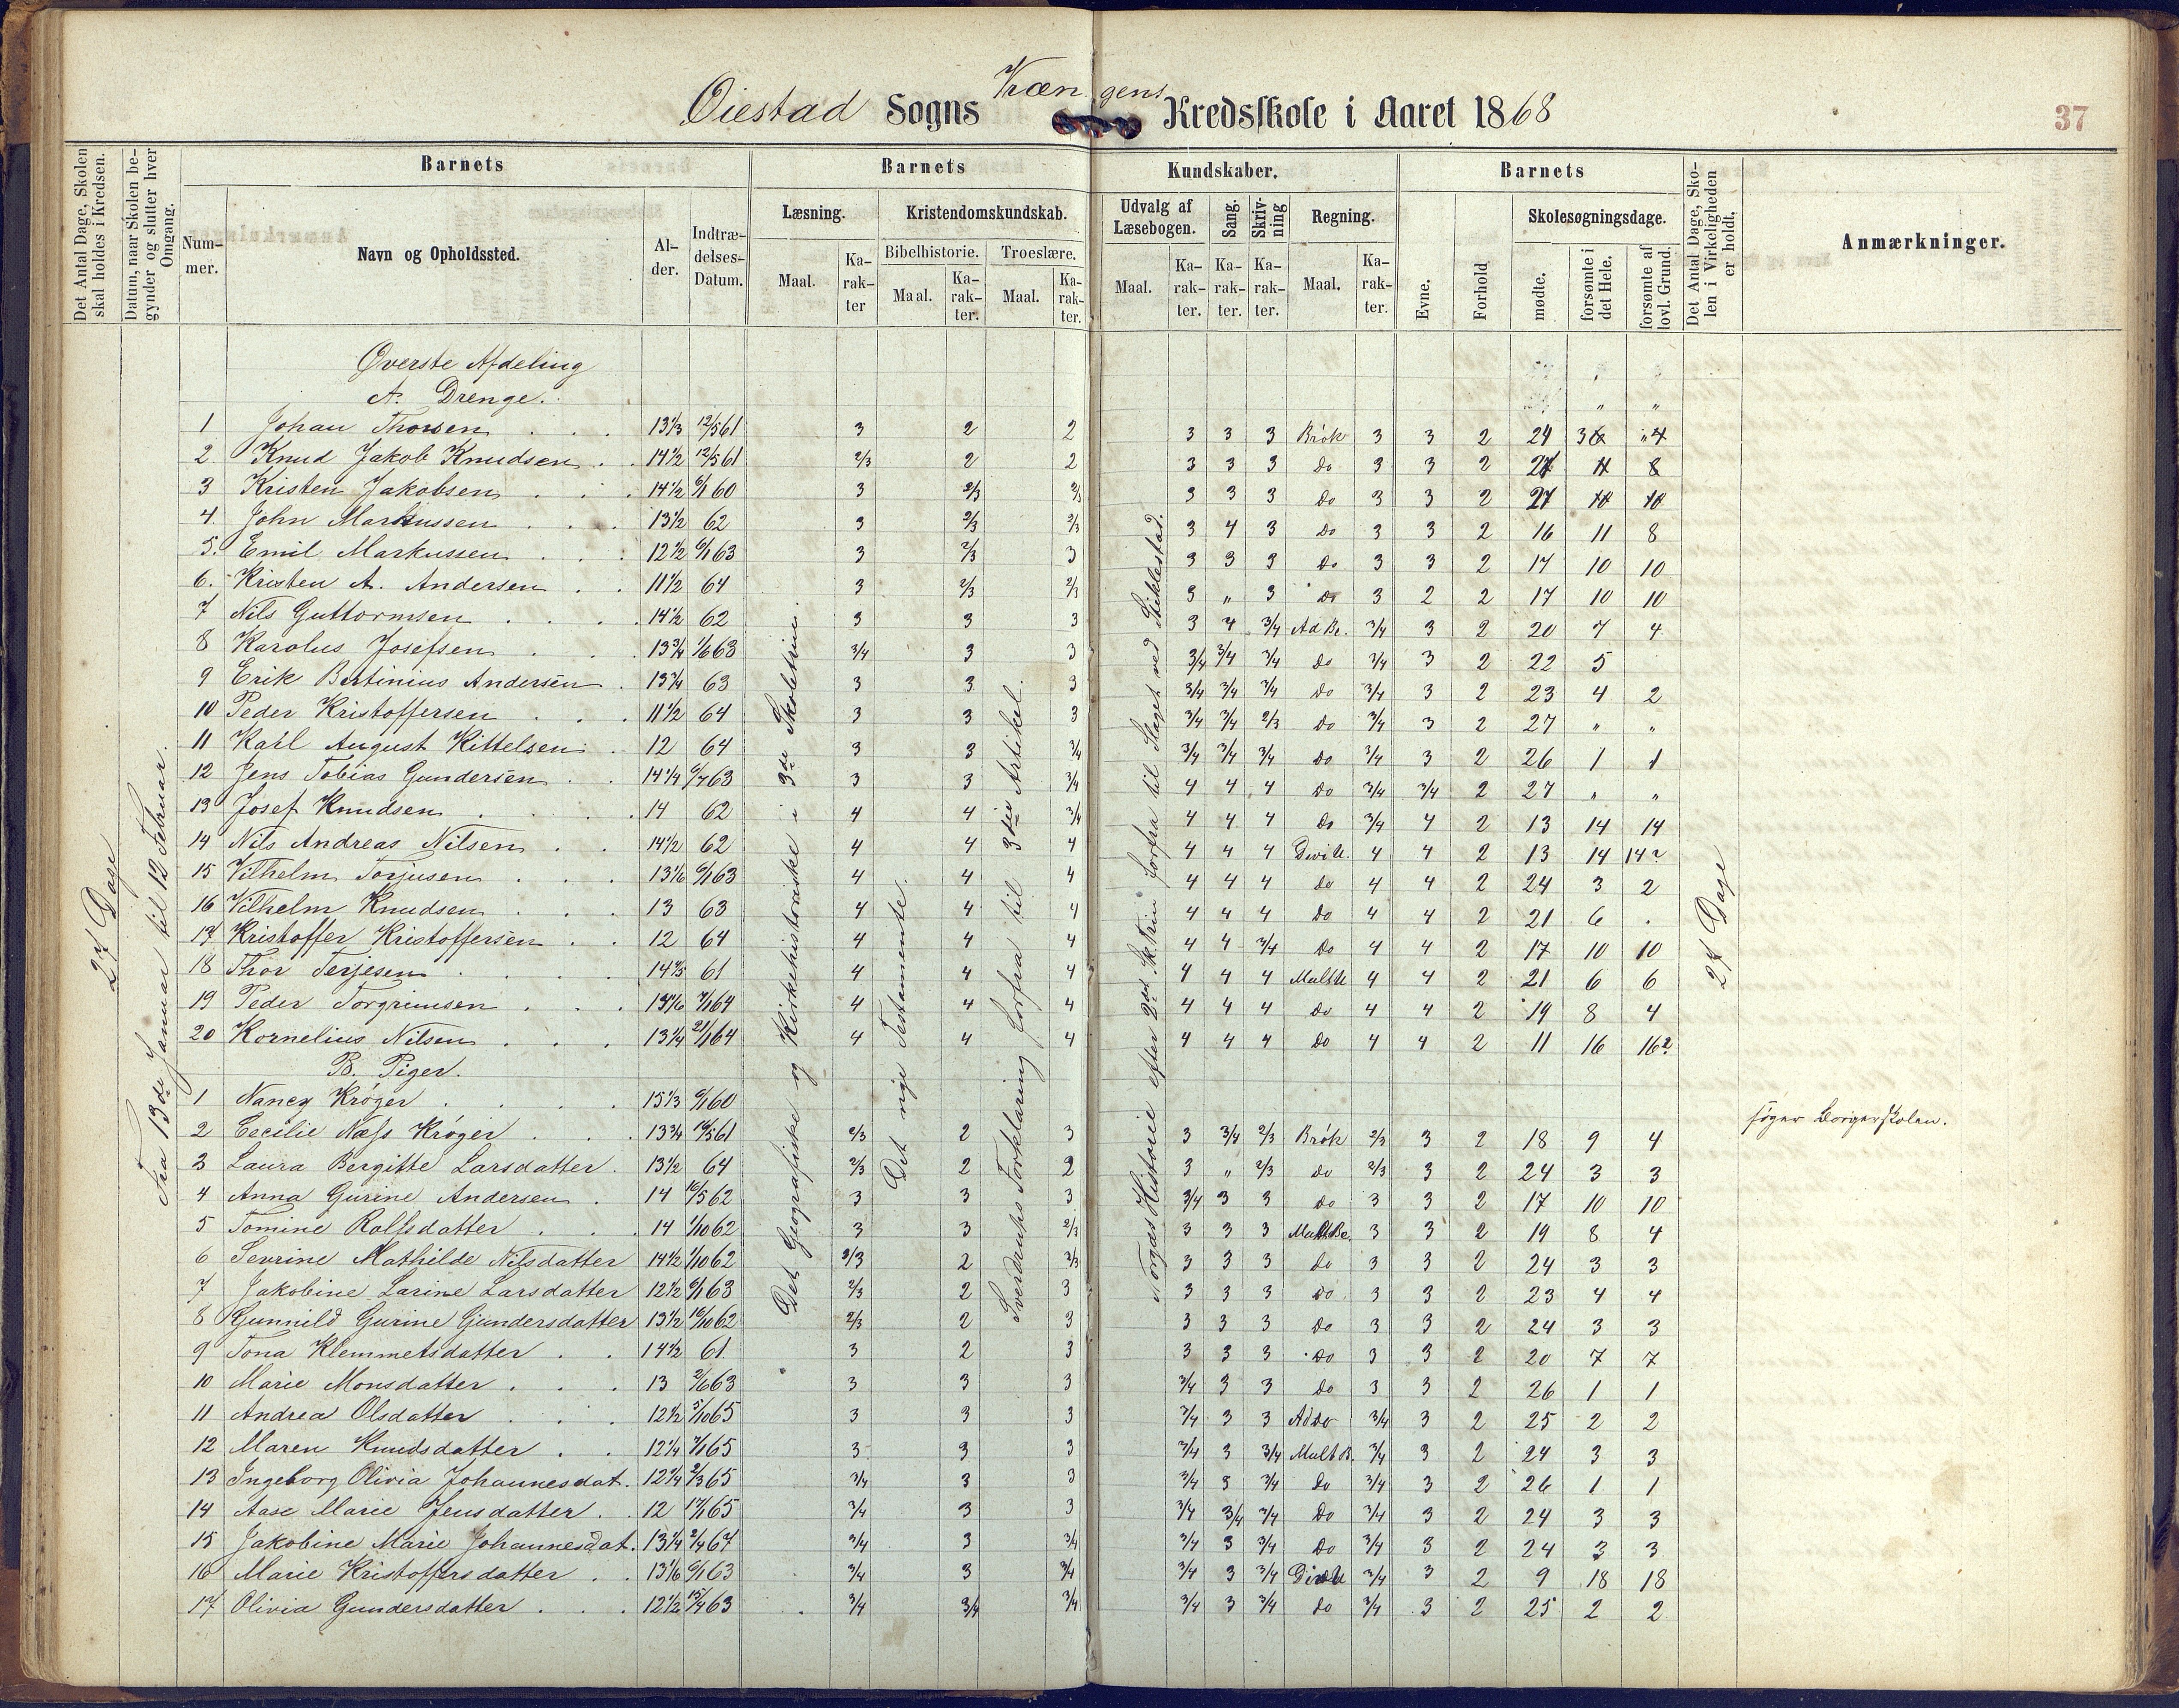 Øiestad Sogns Kræn gens Kredsskole i Aaret 1868
37
Det Antal Dage, Skolen skal holdes i Kredsen.
Datum, naar Skolen begynder og slutter hver Omgang.
Barnets
Nummer.
Navn og Opholdssted.
Alder.
Indtrædelses-Datum.
Barnets
Læsning.
Maal.
Karakter
Kristendomskundskab.
Bibelhistorie.
Maal.
Karakter.
Troeslære.
Maal.
Karakter.
Kundskaber.
Udvalg af Læsebogen.
Maal.
Karakter.
Sang.
Karakter.
Skrivning
Karakter.
Regning.
Maal.
Karakter.
Barnets
Evne.
Forhold
Skolesøgningsdage.
mødte.
forsømte i det Hele.
forsømte af lovl. Grund.
Det Antal Dage, Skolen i Virkeligheden er holdt.
Anmærkninger.
27 Dage
Fra 13de Januar til 12 Februar.
Det Geografiske og Kirkehistoriske i 3die Skoletrin.
Det nye Testamente.
Sverdrups Forklaring forfra til 3die Artikel.
Norges Historie efter 2det Sk. Trin forfra til Slaget ved Stiklestad.
27 Dage
Øverste Afdeling
A. Drenge.
1 Johan Thorsen 13 1/3 12/5 61 3 2 2 3 3 3 Brök 3 3 2 24 3 4
2. Knud Jakob Knudsen 14 1/2 12/5 61 2/3 2 2 3 3 3 do 3 3 2 27 8
3 Kristen Jakobsen 14 1/2 6/1 60 3 2/3 2/3 3 3 3 do 3 3 2 27 10 10
4. John Markussen 13 1/2 62 3 2/3 2/3 3 4 3 do 3 3 2 16 11 8
5. Emil Markussen 12 1/2 6/1 63 3 2/3 3 3 3 3 do 3 3 2 17 10 10
6. Kristen A. Andersen 11 1/2 64 3 2/3 2/3 3 " 3 do 3 2 2 17 10 10
7 Nils Guttormsen 14 1/2 62 3 3 3 3 4 3/4 Ad Be. 3/4 3 2 20 7 4
8 Karolus Josefsen 13 3/4 1/6 63 3/4 3 3 3/4 3/4 3/4 do 3/4 3 2 22 5
9 Erik Bertinius Andersen 13 3/4 63 3 3 3 3/4 3/4 3/4 do 3/4 3 2 23 4 2
10 Peder Kristoffersen 11 1/2 64 3 3 3 3/4 3/4 2/3 do 3/4 3 2 27 " "
11 Karl August Kittelsen 12 64 3 3 3/4 3/4 3/4 3/4 do 3/4 3 2 26 1 1
12 Jens Tobias Gundersen 14 1/4 6/7 63 3 3 3/4 4 4 4 do 3/4 3/4 2 27 " "
13 Josef Knudsen 14 62 4 4 3/4 4 4 4 do 3/4 4 2 13 14 14
14 Nils Andreas Nilsen 14 1/2 62 4 4 4 4 4 4 Divi U. 4 4 2 13 14 14?
15 Vilhelm Torjusen 13 1/6 6/1 63 4 4 4 4 4 4 do 4 4 2 24 3 2
16 Vilhelm Knudsen 13 63 4 4 4 4 4 4 do 4 4 2 21 6 .
17 Kristoffer Kristoffersen 12 64 4 4 4 4 4 3/4 do 4 4 2 17 10 10
18 Thor Terjesen 61 4 4 4 4 4 4 Mult U 4 4 2 21 6 6
19 Peder Torgrimsen 7/1 64 4 4 4 4 4 4 do 4 4 2 19 8 4
20 Kornelius Nilsen 13 1/4 21/1 64 4 4 4 4 4 4 do 4 4 2 11 16 16?
B. Piger.
1 Nancy Kröger 15 1/3 6/1 60 søger Borgerskolen.
2 Cecilie Næss Kröger 13 3/4 61 2/3 2 3 3 3/4 2/3 Brök 2/3 3 2 18 9 4
3 Laura Bergitte Larsdatter 13 1/2 64 2/3 2 2 3 " 2/3 do 2/3 3 2 24 3 3
4 Anna Gurine Andersen 14 16/5 62 3 3 3 3/4 3 3 do 3 3 2 17 10 10
5 Tomine Rolfsdatter 14 1/10 62 3 3 2/3 3 3 3 Mult Be. 3 3 2 19 8 4
6 Sevrine Mathilde Nilsdatter 14 1/2 1/10 62 2/3 2 2/3 3 3 3 do 3 3 2 24 3 3
7 Jakobine Larine Larsdatter 12 1/2 6/1 63 2/3 2 3 3 3 3 do 3 3 2 23 4 4
8 Gunnild Gurine Gundersdatter 13 1/2 16/10 62 2/3 2 3 3 3 3 do 3 3 2 24 3 3
9 Tona Klemmetsdatter 14 1/2 61 3 2 3 3 3 3 do 3 3 2 20 7 7
10 Marie Monsdatter 13 2/6 63 3 3 3 3/4 3 3 do 3 3 2 26 1 1
11 Andrea Olsdatter 12 1/2 5/10 65 3 3 3 3/4 3 3 Addo 3/4 3 2 25 2 2
12 Maren Knudsdatter 12 1/4 7/1 65 3 3 3 3/4 3 3/4 Mult B. 3/4 3 2 24 3 3
13 Ingeborg Olivia Johannesdat. 12 1/4 2/3 65 3/4 3 3 3/4 3 3/4 do 3/4 3 2 26 1 1
14 Aase Marie Jensdatter 12 17/1 65 3/4 3 3 3/4 3/4 3/4 do 3/4 3 2 24 3 3
15 Jakobine Marie Johannesdat. 13 1/4 2/4 64 3/4 3 3/4 3/4 3 3/4 do 3/4 3 2 24 3 3
16 Marie Kristoffersdatter 13 1/6 6/1 63 3/4 3 3/4 3/4 3 3/4 Divi U 3/4 3 2 9 18 18
17 Olivia Gundersdatter 12 1/2 15/4 63 3/4 3/4 3/4 3/4 3 3/4 do 3/4 3 2 25 2 2